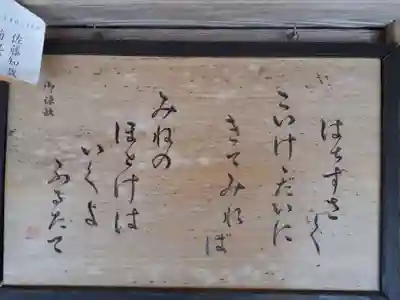 はちすさく
こいけだいに
きてみれば
みねの
ほとけは
いくよ
ふるたて
御詠歌